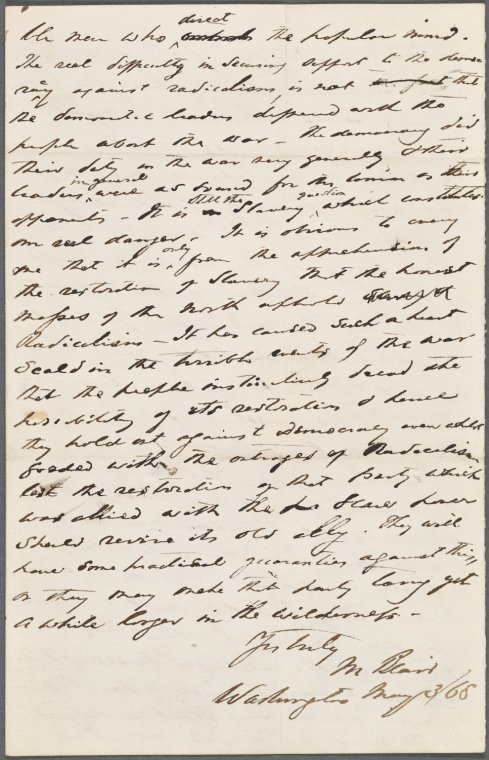 the men who direct the popular mind.
The real difficulty in securing support to the democ
racy against radicalism is not that
the democratic leaders differed with the
people about the war – the democracy did
their duty in the war very generally & their
leaders in general were as sound for the Union as their
opponents – It is still the Slavery question which constitutes
our real danger. It is obvious to every
one that it is only from the apprehension of
the restoration of Slavery that the honest
masses of the North uphold
Radicalism – It has caused such a heart
scald in the terrible events of the war
that the people instinctively dread the
possibility of its restoration & hence
they hold out against Democracy even altho
with the outrages of Radicalism
lest the restoration of that party which
was allied with the Slave power
should revive its old ally. They will
have some practical guaranties against this,
or they may make that party tarry yet
a while longer in the wilderness –
Yrs truly
M Blair
Washington May 3/68